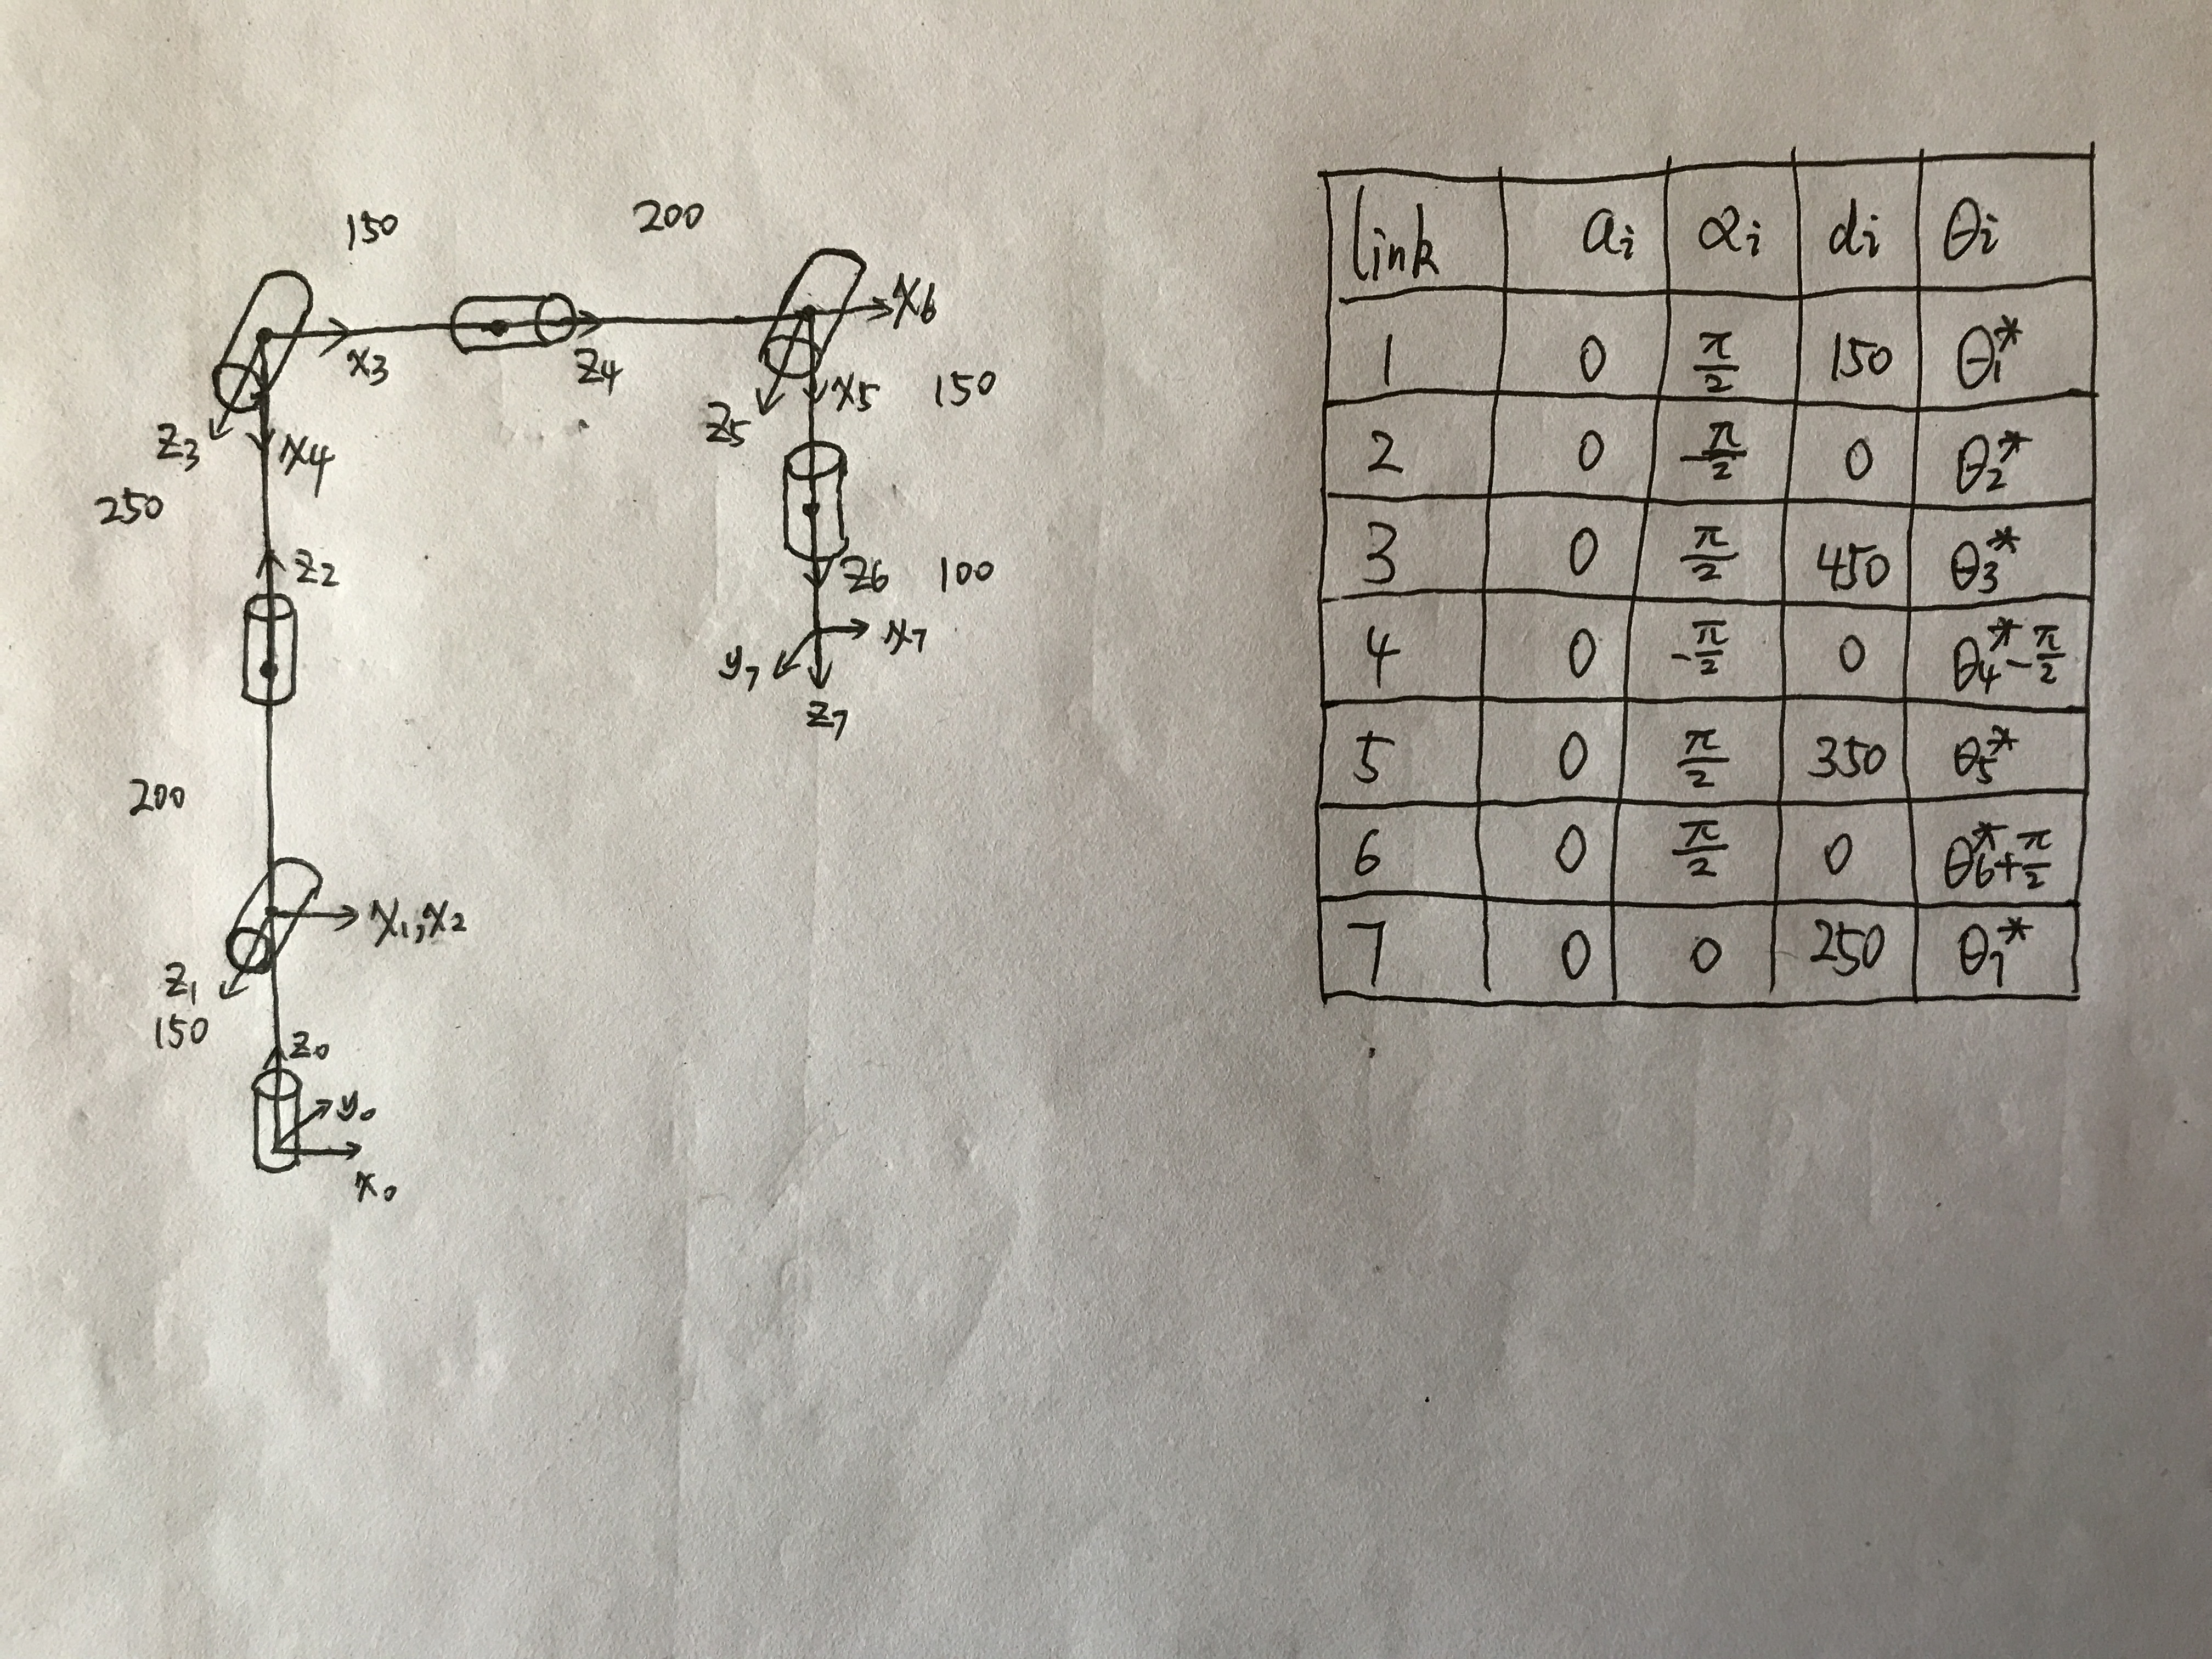 150
200
X3
Z4
X6
Z3
X4
Z5
X5
150
250
Z2
Z6
100
X7
y7
Z7
200
X1,X2
Z1
150
Z0
y0
X0
link ai αi di θi
1 0 π/2 150 θ1*
2 0 -π/2 0 θ2*
3 0 π/2 450 θ3*
4 0 -π/2 0 θ4*-π/2
5 0 π/2 350 θ5*
6 0 π/2 0 θ6*+π/2
7 0 0 250 θ7*